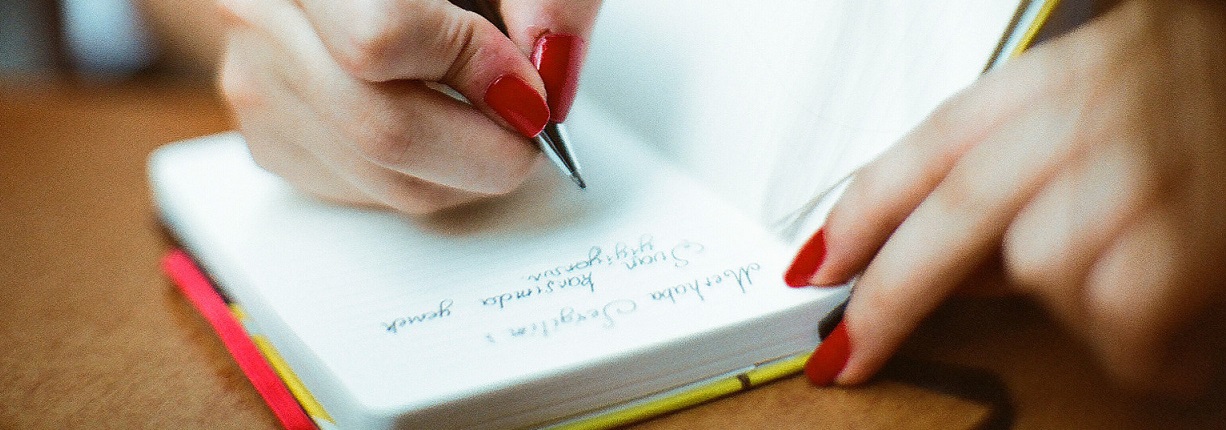 Merhaba Sevgilim :
Şuan karşımda yemek
yiyiyorsun.